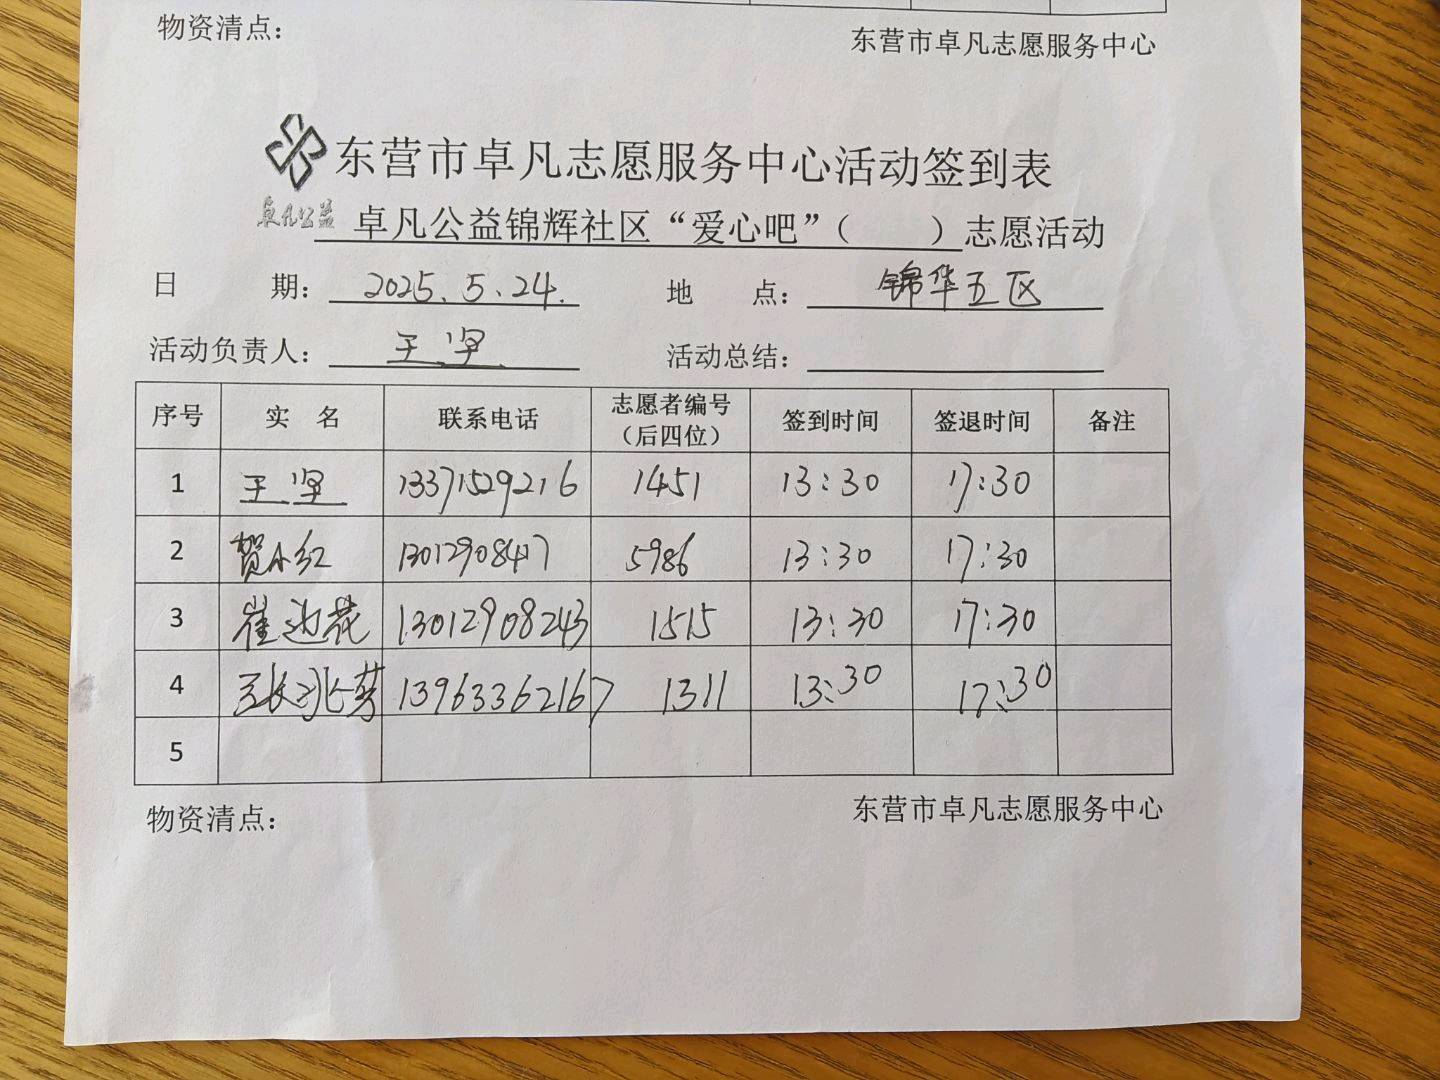 物资清点：
东营市卓凡志愿服务中心
东营市卓凡志愿服务中心活动签到表
卓凡公益
卓凡公益锦辉社区“爱心吧”（　　）志愿活动
日　期： 2025.5.24. 地　点： 锦华五区
活动负责人： 王坚 活动总结：
序号 实 名 联系电话 志愿者编号（后四位） 签到时间 签退时间 备注
1 王坚 13371529216 1451 13:30 17:30
2 贺小红 13012908417 5986 13:30 17:30
3 崔 花 13012908243 1515 13:30 17:30
4 芳 13963362167 1311 13:30 17:30
5
物资清点：
东营市卓凡志愿服务中心